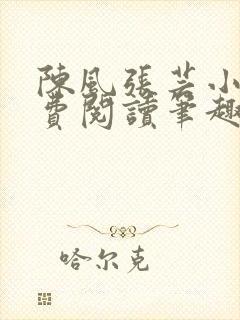 陳風張芸小
費閱讀筆趣
哈尔克